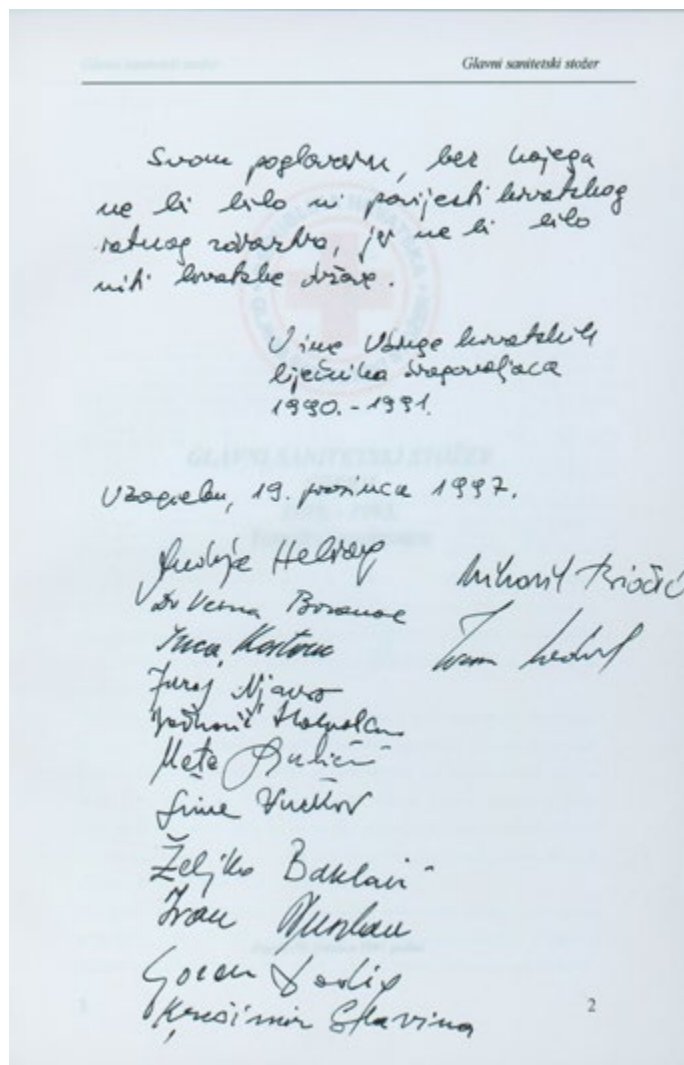 Glavni sanitetski stožer
Svom poglavaru, bez kojega
ne bi bilo ni povijesti hrvatskog
ratnog zdravstva, jer ne bi bilo
niti hrvatske države.
U ime Udruge hrvatskih
liječnika dragovoljaca
1990.-1991.
U Zagrebu, 19. prosinca 1997.
Andrija Hebrang
Dr Vesna Bosanac
Ivica Kostović
Juraj Njavro
Mate
Šime Vučkov
Željko Baklaić
Ivan
Goran Dodig
Krešimir Glavina
Ivan
2
GLAVNI SANITETSKI STOŽER